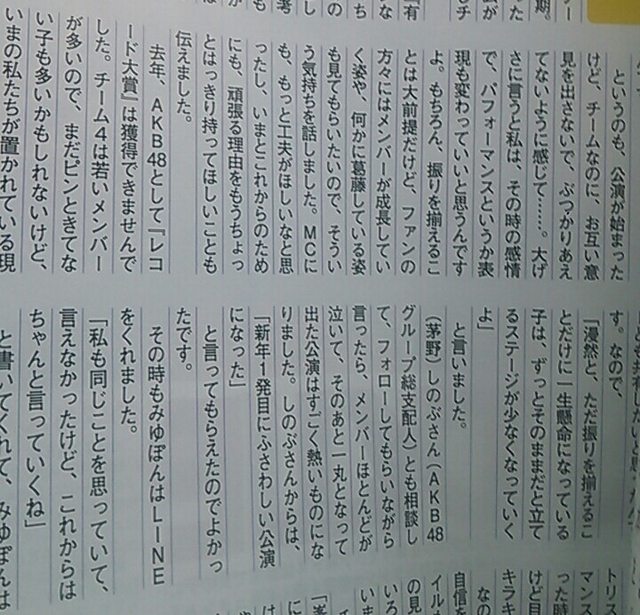 期。
った
「有
というのも、公演が始まった
けど、チームなのに、お互い意
見を出さないで、ぶつかりあえ
てないように感じて……。大げ
さに言うと私は、その時の感情
で、パフォーマンスというか表
現も変わっていいと思うんです
よ。もちろん、振りを揃えるこ
とは大前提だけど、ファンの
方々にはメンバーが成長してい
く姿や、何かに葛藤している姿
も見てもらいたいので、そうい
う気持ちを話しました。MCに
も、もっと工夫がほしいなと思
ったし、いまとこれからのため
にも、頑張る理由をもうちょっ
とはっきり持ってほしいことも
伝えました。
去年、AKB48として『レコ
ード大賞』は獲得できませんで
した。チーム4は若いメンバー
が多いので、まだピンときてな
い子も多いかもしれないけど、
いまの私たちが置かれている現
す。なので、
『漫然と、ただ振りを揃えるこ
とだけに一生懸命になっている
子は、ずっとそのままだと立て
るステージが少なくなっていく
よ」
と言いました。
(茅野)しのぶさん(AKB48
グループ総支配人)とも相談し
て、フォローしてもらいながら
言ったら、メンバーほとんどが
泣いて、そのあと一丸となって
出た公演はすごく熱いものにな
りました。しのぶさんからは、
「新年1発目にふさわしい公演
になった」
と言ってもらえたのでよかっ
たです。
その時もみゆぽんはLINE
をくれました。
「私も同じことを思っていて、
言えなかったけど、これからは
ちゃんと言っていくね」
と書いてくれて、みゆぽんは
トリス
マンス
けど目
キラキ
な
自信を
の見
いろ
いま